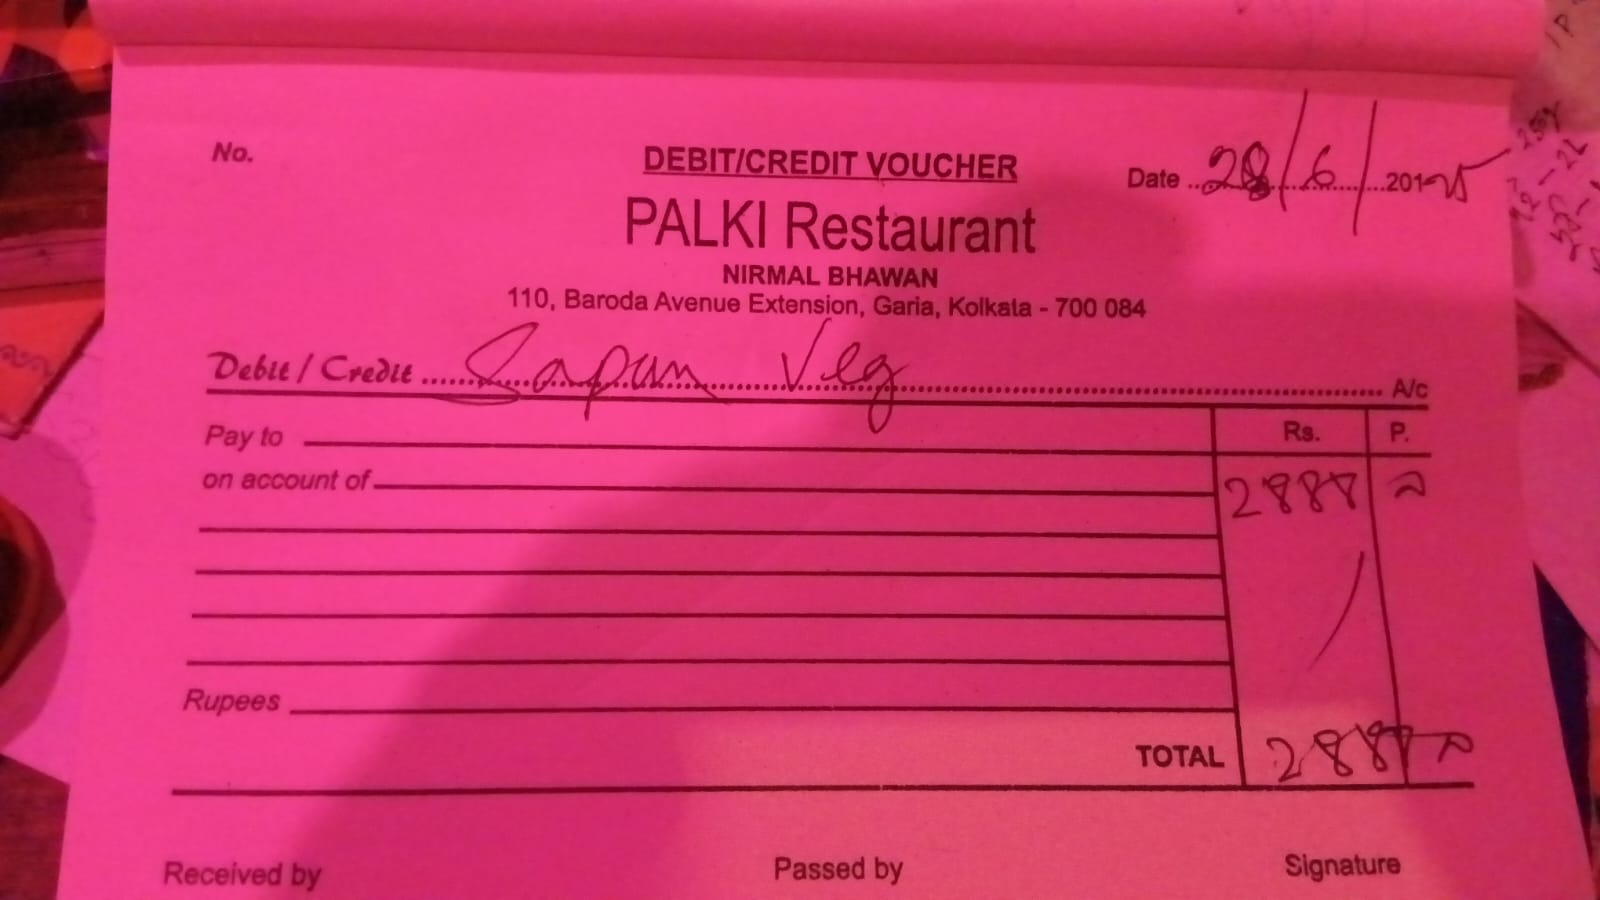 No.
DEBIT/CREDIT VOUCHER
Date 28/6/2025
PALKI Restaurant
NIRMAL BHAWAN
110, Baroda Avenue Extension, Garia, Kolkata - 700 084
Debit / Credit Sapan Veg A/c
Pay to
Rs. P.
on account of
2888
Rupees
TOTAL 2888
Received by Passed by Signature